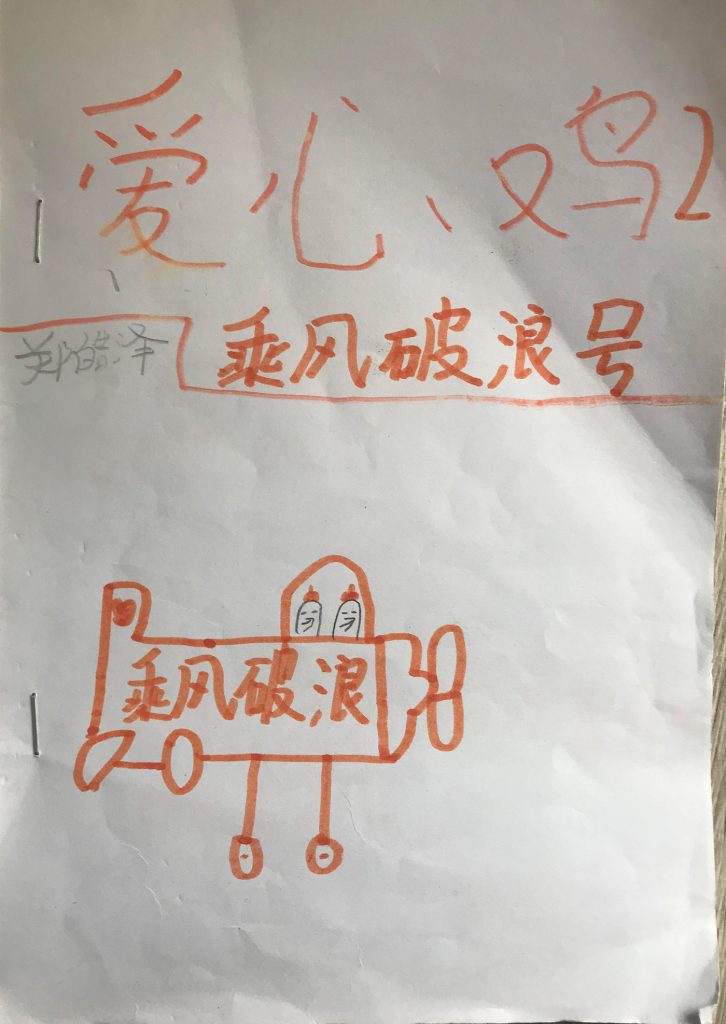 爱心鸡2
郑皓泽 乘风破浪号
乘风破浪